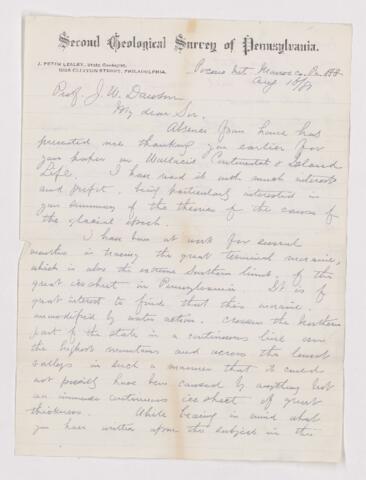 Second Geological Survey of Pennsylvania.
J. PETER LESLEY, State Geologist,
1008 CLINTON STREET, PHILADELPHIA.
Pocono Mt. Monroe Co. Pa. 188
Aug 10/81
Prof. J. W. Dawson
My dear Sir.
Absence from home has
prevented me thanking you earlier for
your paper on Wallace's Continental & Island
Life. I have read it with much interest
and profit, being particularly interested in
your summary of the theories of the causes of
the glacial epoch.
I have been at work for several
months in tracing the great terminal moraine,
which is also the extreme southern limit of the
great ice sheet in Pennsylvania. It is of
great interest to find that this moraine,
unmodified by water action, crosses the Northern
part of the state in a continuous line over
the highest mountains and across the lowest
valleys in such a manner that it could
not possibly have been caused by anything but
an immense continuous ice sheet of great
thickness. While bearing in mind what
you have written upon this subject in the